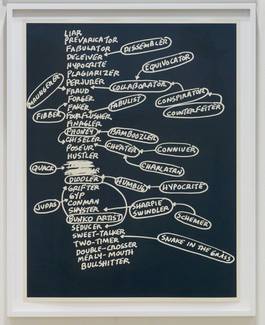 LIAR
PREVARICATOR
FABULATOR
DISSEMBLER
DECEIVER
HYPOCRITE
EQUIVOCATOR
PLAGIARIZER
PERJURER
COLLABORATOR
MALINGERER
FRAUD
CONSPIRATOR
FORGER
FABULIST
COUNTERFEITER
FAKER
FIBBER
FOURFLUSHER
FINAGLER
PHONEY
BAMBOOZLER
CHISELER
POSEUR
CHEATER
CONNIVER
HUSTLER
QUACK
CHARLATAN
DIDDLER
HUMBUG
HYPOCRITE
GRIFTER
GYP
JUDAS
CONMAN
SHARPIE
SHYSTER
SWINDLER
SCHEMER
BUNKO ARTIST
SEDUCER
SWEET-TALKER
SNAKE IN THE GRASS
TWO-TIMER
DOUBLE-CROSSER
MEALY-MOUTH
BULLSHITTER